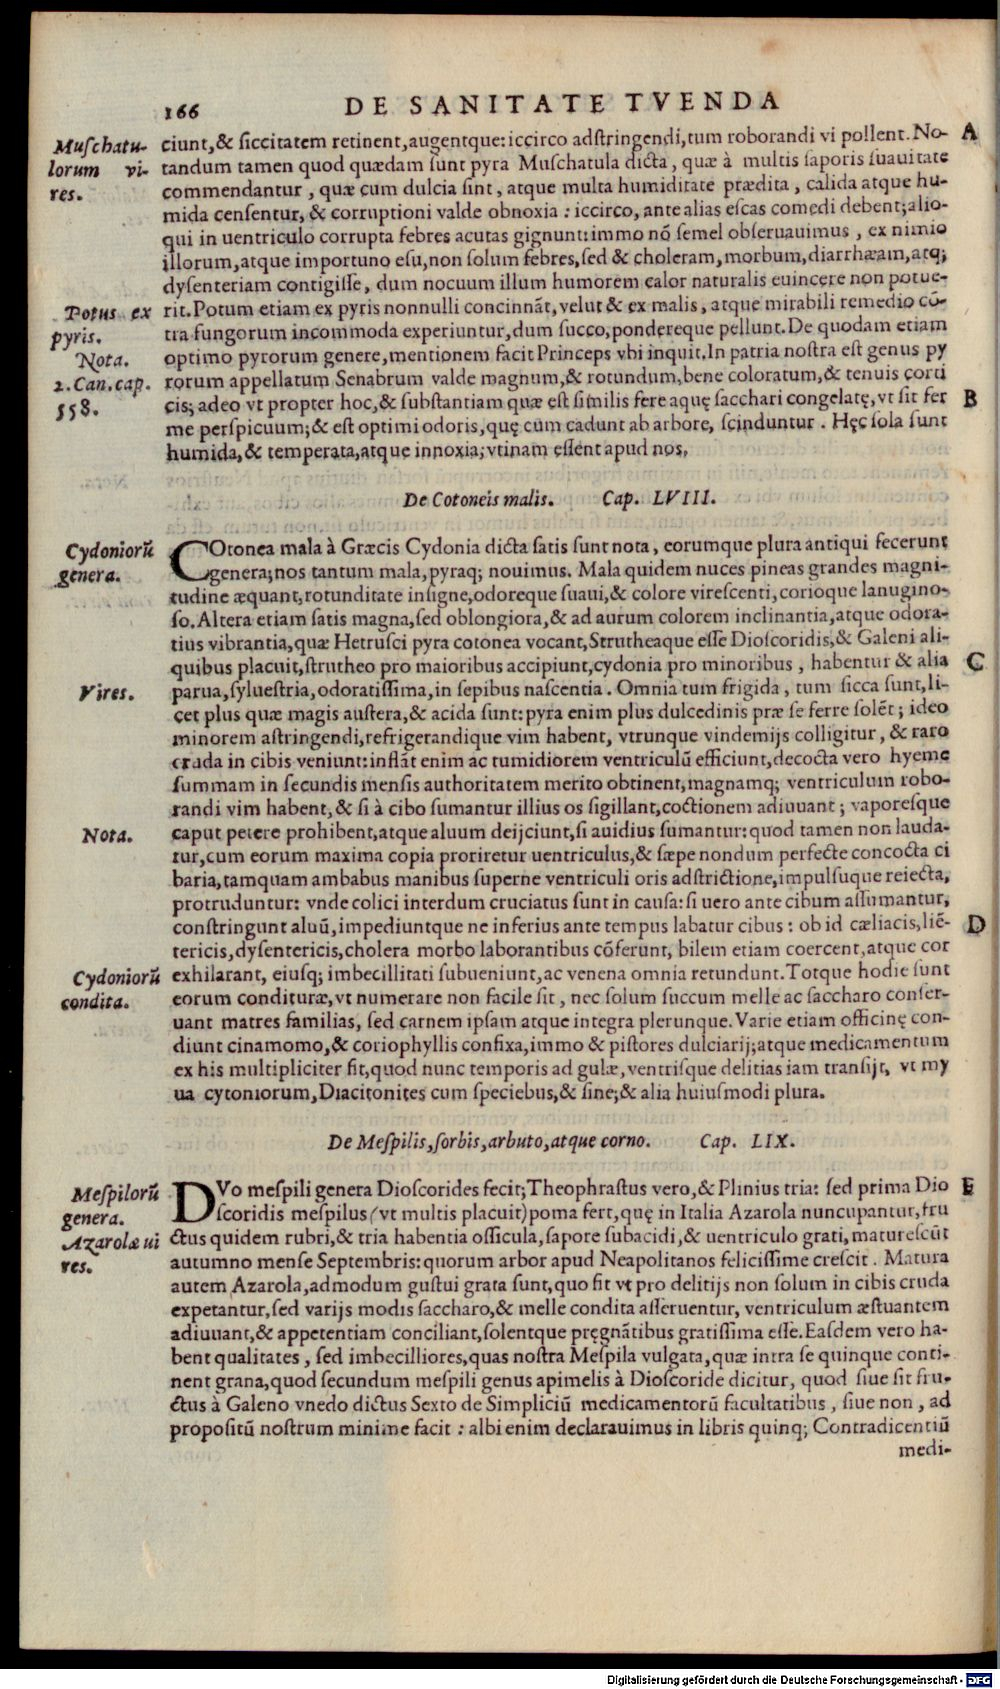 166 DE SANITATE TVENDA
Muſchatu-
lorum vi-
res.
ciunt,& ſiccitatem retinent,augentque:iccirco adſtringendi,tum roborandi vi pollent. No- A
tandum tamen quod quædam ſunt pyra Muſchatula dicta, quæ à multis ſaporis ſuauitate
commendantur, quæ cum dulcia ſint, atque multa humiditate prædita, calida atque hu-
mida cenſentur, & corruptioni valde obnoxia: iccirco, ante alias eſcas comedi debent; alio-
qui in uentriculo corrupta febres acutas gignunt: immo nõ ſemel obſeruauimus, ex nimio
illorum, atque importuno eſu, non ſolum febres, ſed & choleram, morbum, diarrhæam, atq;
dyſenteriam contigiſſe, dum nocuum illum humorem calor naturalis euincere non potue-
Potus ex
pyris.
Nota.
2. Can. cap.
558.
rit. Potum etiam ex pyris nonnulli concinnãt, velut & ex malis, atque mirabili remedio cõ-
tra fungorum incommoda experiuntur, dum ſucco, pondereque pellunt. De quodam etiam
optimo pyrorum genere, mentionem facit Princeps vbi inquit, In patria noſtra eſt genus py
rorum appellatum Senabrum valde magnum, & rotundum, bene coloratum, & tenuis corti
cis; adeo vt propter hoc, & ſubſtantiam quæ eſt ſimilis fere aquę ſacchari congelatę, vt ſit fer B
me perſpicuum; & eſt optimi odoris, quę cum cadunt ab arbore, ſcinduntur. Hęc ſola ſunt
humida, & temperata, atque innoxia; vtinam eſſent apud nos.
De Cotoneis malis. Cap. LVIII.
Cydoniorũ
genera.
COtonea mala à Græcis Cydonia dicta ſatis ſunt nota, eorumque plura antiqui fecerunt
genera; nos tantum mala, pyraq; nouimus. Mala quidem nuces pineas grandes magni-
tudine æquant, rotunditate inſigne, odoreque ſuaui, & colore vireſcenti, corioque lanugino-
ſo. Altera etiam ſatis magna, ſed oblongiora, & ad aurum colorem inclinantia, atque odora-
tius vibrantia, quæ Hetruſci pyra cotonea vocant, Strutheaque eſſe Dioſcoridis, & Galeni ali-
quibus placuit, ſtrutheo pro maioribus accipiunt, cydonia pro minoribus, habentur & alia C
Vires.
parua, ſylueſtria, odoratiſſima, in ſepibus naſcentia. Omnia tum frigida, tum ſicca ſunt, li-
cet plus quæ magis auſtera, & acida ſunt: pyra enim plus dulcedinis præ ſe ferre ſolẽt; ideo
minorem aſtringendi, refrigerandique vim habent, vtrunque vindemijs colligitur, & raro
cruda in cibis veniunt: inflãt enim ac tumidiorem ventriculũ efficiunt, decocta vero hyeme
ſummam in ſecundis menſis authoritatem merito obtinent, magnamq; ventriculum robo-
randi vim habent, & ſi à cibo ſumantur illius os ſigillant, coctionem adiuuant; vaporeſque
Nota.
caput petere prohibent, atque aluum deijciunt, ſi auidius ſumantur: quod tamen non lauda-
tur, cum eorum maxima copia proriretur uentriculus, & ſæpe nondum perfecte concocta ci
baria, tamquam ambabus manibus ſuperne ventriculi oris adſtrictione, impulſuque reiecta,
protruduntur: vnde colici interdum cruciatus ſunt in cauſa: ſi uero ante cibum aſſumantur,
conſtringunt aluũ, impediuntque ne inferius ante tempus labatur cibus: ob id cæliacis, liẽ- D
tericis, dyſentericis, cholera morbo laborantibus cõferunt, bilem etiam coercent, atque cor
Cydoniorũ
condita.
exhilarant, eiuſq; imbecillitati ſubueniunt, ac venena omnia retundunt. Totque hodie ſunt
eorum condituræ, vt numerare non facile ſit, nec ſolum ſuccum melle ac ſaccharo conſer-
uant matres familias, ſed carnem ipſam atque integra plerunque. Varie etiam officinę con-
diunt cinamomo, & coriophyllis confixa, immo & piſtores dulciarij; atque medicamentum
ex his multipliciter fit, quod nunc temporis ad gulæ, ventriſque delitias iam tranſijt, vt my
ua cytoniorum, Diacitonites cum ſpeciebus, & ſine; & alia huiuſmodi plura.
De Meſpilis, ſorbis, arbuto, atque corno. Cap. LIX.
Meſpilorũ
genera.
Azarolæ ui
res.
DVo meſpili genera Dioſcorides fecit; Theophraſtus vero, & Plinius tria: ſed prima Dio E
ſcoridis meſpilus (vt multis placuit) poma fert, quę in Italia Azarola nuncupantur, fru
ctus quidem rubri, & tria habentia oſſicula, ſapore ſubacidi, & uentriculo grati, matureſcũt
autumno menſe Septembris: quorum arbor apud Neapolitanos feliciſſime creſcit. Matura
autem Azarola, admodum guſtui grata ſunt, quo fit vt pro delitijs non ſolum in cibis cruda
expetantur, ſed varijs modis ſaccharo, & melle condita aſſeruentur, ventriculum æſtuantem
adiuuant, & appetentiam conciliant, ſolentque pręgnãtibus gratiſſima eſſe. Eaſdem vero ha-
bent qualitates, ſed imbecilliores, quas noſtra Meſpila vulgata, quæ intra ſe quinque conti-
nent grana, quod ſecundum meſpili genus apimelis à Dioſcoride dicitur, quod ſiue ſit fru-
ctus à Galeno vnedo dictus Sexto de Simpliciũ medicamentorũ facultatibus, ſiue non, ad
propoſitũ noſtrum minime facit: albi enim declarauimus in libris quinq; Contradicentiũ
medi-
Digitalisierung gefördert durch die Deutsche Forschungsgemeinschaft - DFG